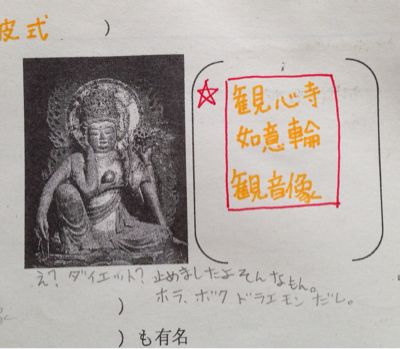 皮式 )
☆ 観心寺
如意輪
観音像
え? ダイエット? 止めましたよそんなもん。
ホラ、ボクドラエモンだし。
)
) も有名